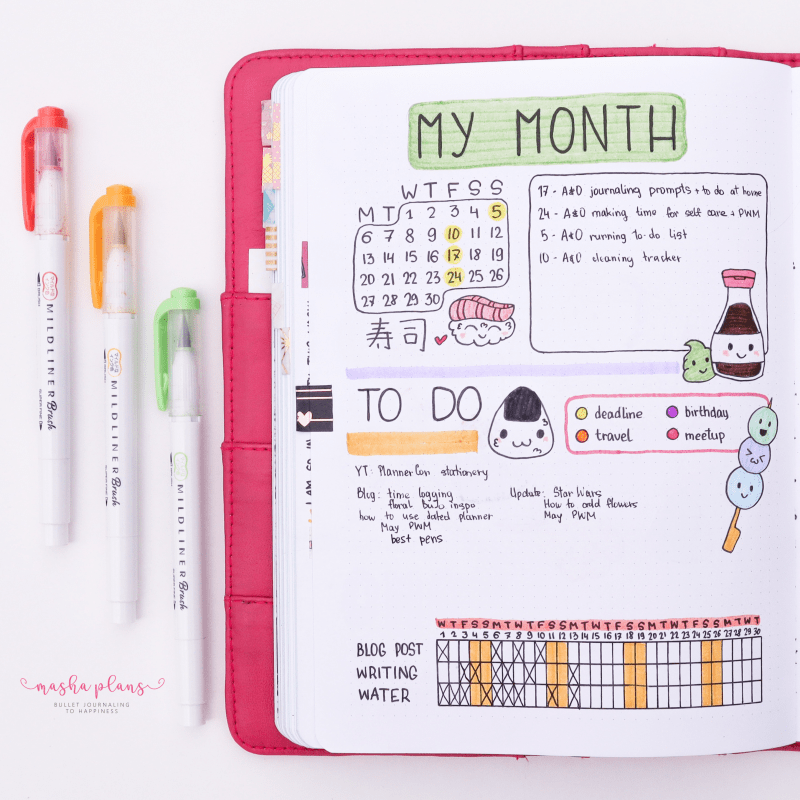 MY MONTH
W T F S S
M T 1 2 3 4 5
6 7 8 9 10 11 12
13 14 15 16 17 18 19
20 21 22 23 24 25 26
27 28 29 30
寿司
17 - A&O journaling prompts + to do at home
24 - A&O making time for self care + PWM
5 - A&O running to-do list
10 - A&O cleaning tracker
TO DO
deadline birthday
travel meetup
YT: PlannerCon stationery
Blog: time logging
floral bujo inspo
how to use dated planner
May PWM
best pens
Update: Star Wars
How to add flowers
May PWM
W T F S S M T W T F S S M T W T F S S M T W T F S S M T W T
1 2 3 4 5 6 7 8 9 10 11 12 13 14 15 16 17 18 19 20 21 22 23 24 25 26 27 28 29 30
BLOG POST
WRITING
WATER
MILDLINER Brush
MILDLINER Brush
MILDLINER Brush
masha plans
BULLET JOURNALING
TO HAPPINESS